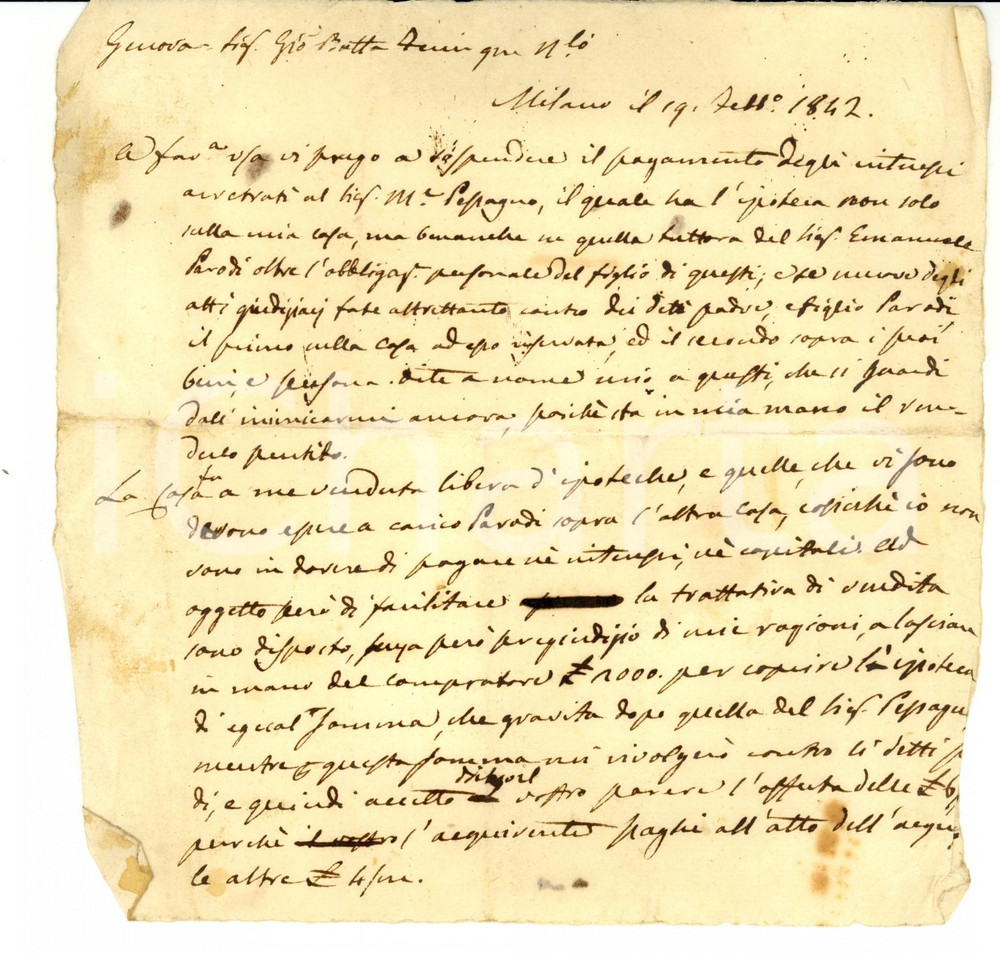 Genova - Sig.r Gio Batta qm N.lò
Milano il 19. Febb.o 1842.
A fav.a vsa vi prego a sospendere il pagamento degli interessi
arretrati al Sig.r M.a Pessagno, il quale ha l'ipoteca non solo
sulla mia casa, ma benanche in quella tuttora del Sig.r Emanuele
Parodi oltre l'obbligaz.e personale del figlio di questi; e se muove degli
atti giudiziarj fate altrettanto contro dei detti padre, e figlio Parodi,
il primo sulla casa ad esso riservata, ed il secondo sopra i suoi
beni, e persona. dite a nome mio a questi, che si guardi
dall'inimicarmi ancora, poichè sta in mia mano il ren-
derlo pentito.
La casa fu a me venduta libera d'ipoteche, e quelle, che vi sono
devono essere a carico Parodi sopra l'altra casa, cosicchè io non
sono in dovere di pagare nè interessi, nè capitali. Ad
oggetto però di facilitare la trattativa di vendita
sono disposto, senza però pregiudizio di mie ragioni, a lasciare
in mano del compratore £ 2000. per coprire la ipoteca
di egual somma, che gravita dopo quella del Sig.r Pessagno
mentre questa somma mi rivolgerò contro li detti
di, e quindi accetto vostro parere l'offerta delle £ 6
perchè il vostro l'acquirente paghi all'atto dell'acqui
le altre £ 4/m.